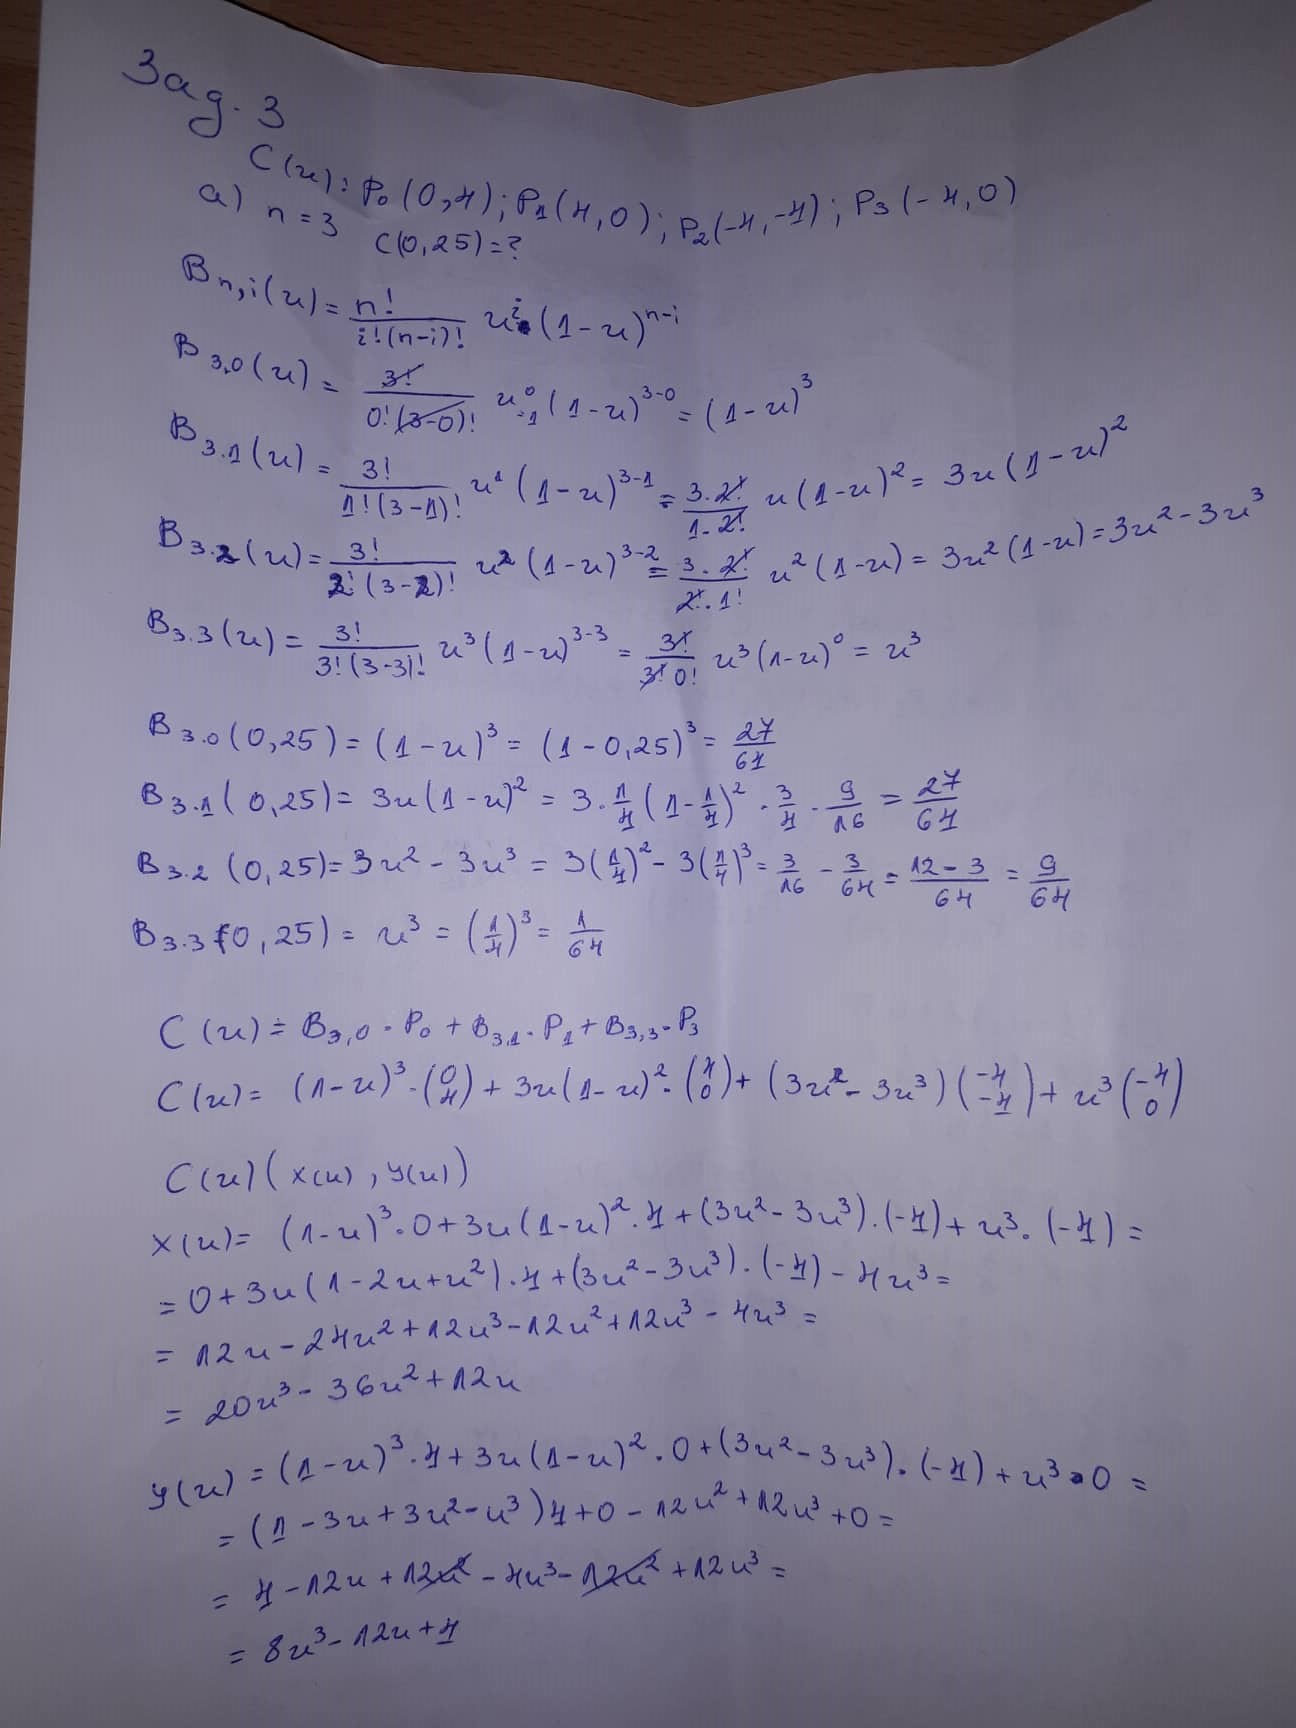 Зад. 3
C(u): P₀(0,4); P₁(4,0); P₂(-4,-4); P₃(-4,0)
a) n = 3 C(0,25)=?
Bn,i(u) = n!/i!(n-i)! uⁱ·(1-u)ⁿ⁻ⁱ
B3,0(u) = 3!/0!(3-0)! u⁰=1 (1-u)³⁻⁰ = (1-u)³
B3.1(u) = 3!/1!(3-1)! u¹ (1-u)³⁻¹ = 3.2!/1.2! u(1-u)² = 3u(1-u)²
B3.2(u) = 3!/2!(3-2)! u² (1-u)³⁻² = 3.2!/2!.1! u²(1-u) = 3u²(1-u) = 3u²-3u³
B3.3(u) = 3!/3!(3-3)! u³(1-u)³⁻³ = 3!/3!0! u³(1-u)⁰ = u³
B3.0(0,25) = (1-u)³ = (1-0,25)³ = 27/64
B3.1(0,25) = 3u(1-u)² = 3.1/4(1-1/4)² . 3/4 . 9/16 = 27/64
B3.2(0,25) = 3u² - 3u³ = 3(1/4)² - 3(1/4)³ = 3/16 - 3/64 = 12-3/64 = 9/64
B3.3(0,25) = u³ = (1/4)³ = 1/64
C(u) = B3,0 . P₀ + B3,1 . P₁ + B3,3 . P₃
C(u) = (1-u)³.(0 4) + 3u(1-u)².(4 0) + (3u²-3u³)(-4 -4) + u³(-4 0)
C(u)(x(u), y(u))
x(u) = (1-u)³.0+3u(1-u)².4+(3u²-3u³).(-4)+u³.(-4) =
= 0+3u(1-2u+u²).4+(3u²-3u³).(-4)-4u³ =
= 12u-24u²+12u³-12u²+12u³-4u³ =
= 20u³-36u²+12u
y(u) = (1-u)³.4+3u(1-u)².0+(3u²-3u³).(-4)+u³.0 =
= (1-3u+3u²-u³)4+0-12u²+12u³+0 =
= 4-12u+12u²-4u³-12u²+12u³ =
= 8u³-12u+4